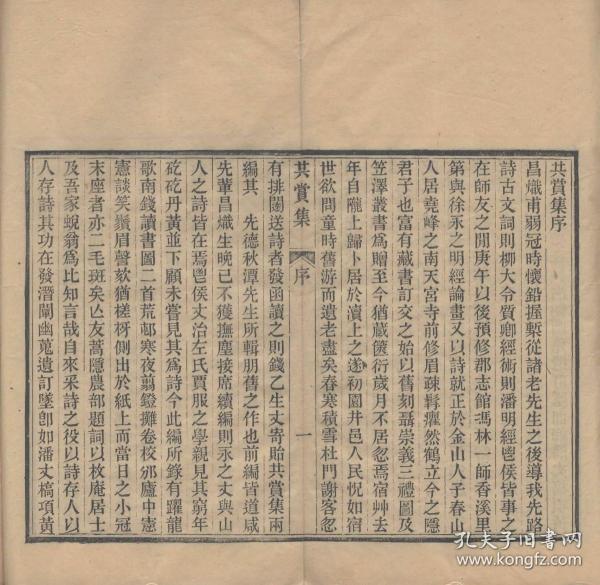 共賞集序
昌熾甫弱冠時懷鉛握槧從諸老先生之後導我先路
詩古文詞則柳大令質卿經術則潘明經鬯侯皆事之
在師友之閒庚午以後預修郡志館馮林一師香溪里
第與徐永之明經論畫又以詩就正於金山人子春山
人居堯峰之南天宮寺前修眉疎髯癯然鶴立今之隱
君子也富有藏書訂交之始以舊刻聶崇義三禮圖及
笠澤叢書爲贈至今猶藏篋衍歲月不居忽焉宿艸去
年自隴上歸卜居於瀆上之遂初園井邑人民怳如宿
世欲問童時舊游而遺老盡矣春寒積雪杜門謝客忽
共賞集
序
一
有排闥送詩者發函讀之則錢乙生丈寄貽共賞集兩
編其 先德秋潭先生所輯朋舊之作也前編皆道咸
先輩昌熾生晚已不獲撫塵接席續編則永之丈與山
人之詩皆在焉鬯侯丈治左氏賈服之學親見其窮年
矻矻丹黃並下顧未嘗見其爲詩今此編所錄有躍龍
歌南錢讀書圖二首荒邨寒夜翦鐙攤卷校邠廬中憲
憲談笑鬚眉聲欬猶槎枒側出於紙上而當日之小冠
末座者亦二毛斑矣亾友蒿隱農部題詞以枚庵居士
及吾家蛻翁爲比知言哉自來釆詩之役以詩存人以
人存詩其功在發潛闡幽蒐遺訂墜卽如潘丈槁項黃
孔夫子旧书网
www.kongfz.com